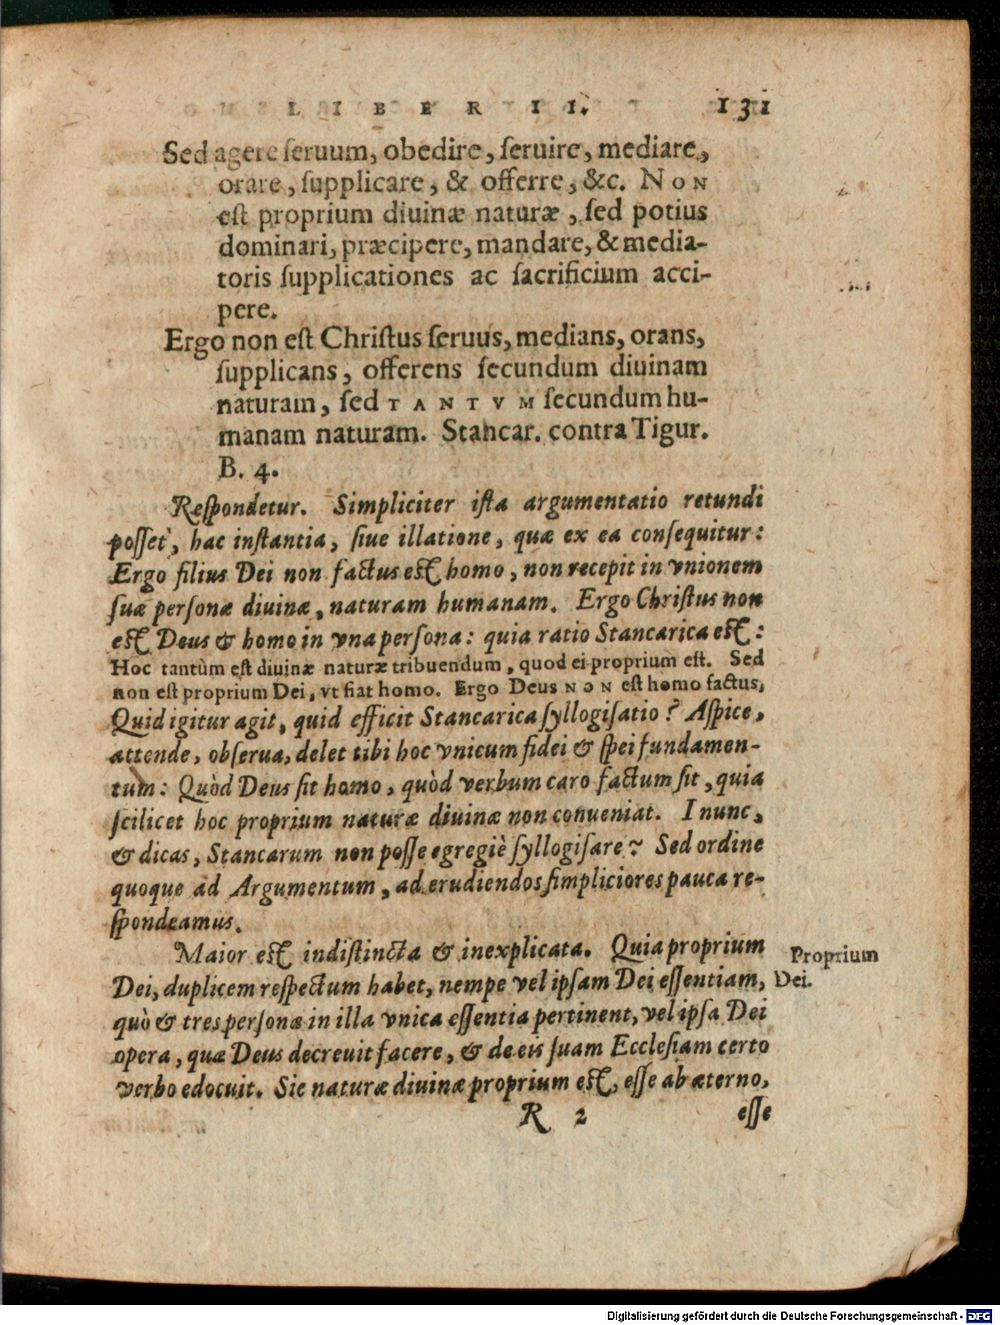 LIBER II. 131
Sed agere ſeruum, obedire, ſeruire, mediare,
orare, ſupplicare, & offerre, &c. NON
eſt proprium diuinæ naturæ, ſed potius
dominari, præcipere, mandare, & media-
toris ſupplicationes ac ſacrificium acci-
pere.
Ergo non eſt Chriſtus ſeruus, medians, orans,
ſupplicans, offerens ſecundum diuinam
naturam, ſed TANTVM ſecundum hu-
manam naturam. Stancar. contra Tigur.
B. 4.
Reſpondetur. Simpliciter iſta argumentatio retundi
poſſet, hac inſtantia, ſiue illatione, quæ ex ea conſequitur:
Ergo filius Dei non factus eſt homo, non recepit in vnionem
ſuæ perſonæ diuinæ, naturam humanam. Ergo Chriſtus non
eſt Deus & homo in vna perſona: quia ratio Stancarica eſt:
Hoc tantùm eſt diuinæ naturæ tribuendum, quod ei proprium eſt. Sed
non eſt proprium Dei, vt fiat homo. Ergo Deus NON eſt homo factus,
Quid igitur agit, quid efficit Stancarica ſyllogiſatio? Aſpice,
attende, obſerua, delet tibi hoc vnicum fidei & ſpei fundamen-
tum: Quòd Deus ſit homo, quòd verbum caro factum ſit, quia
ſcilicet hoc proprium naturæ diuinæ non conueniat. I nunc,
& dicas, Stancarum non poſſe egregiè ſyllogiſare? Sed ordine
quoque ad Argumentum, ad erudiendos ſimpliciores pauca re-
ſpondeamus.
Maior eſt indiſtincta & inexplicata. Quia proprium
Proprium
Dei, duplicem reſpectum habet, nempe vel ipſam Dei eſſentiam,
Dei.
quò & tres perſonæ in illa vnica eſſentia pertinent, vel ipſa Dei
opera, quæ Deus decreuit facere, & de eis ſuam Eccleſiam certo
verbo edocuit. Sic naturæ diuinæ proprium eſt, eſſe ab æterno,
R 2 eſſe
Digitalisierung gefördert durch die Deutsche Forschungsgemeinschaft - DFG